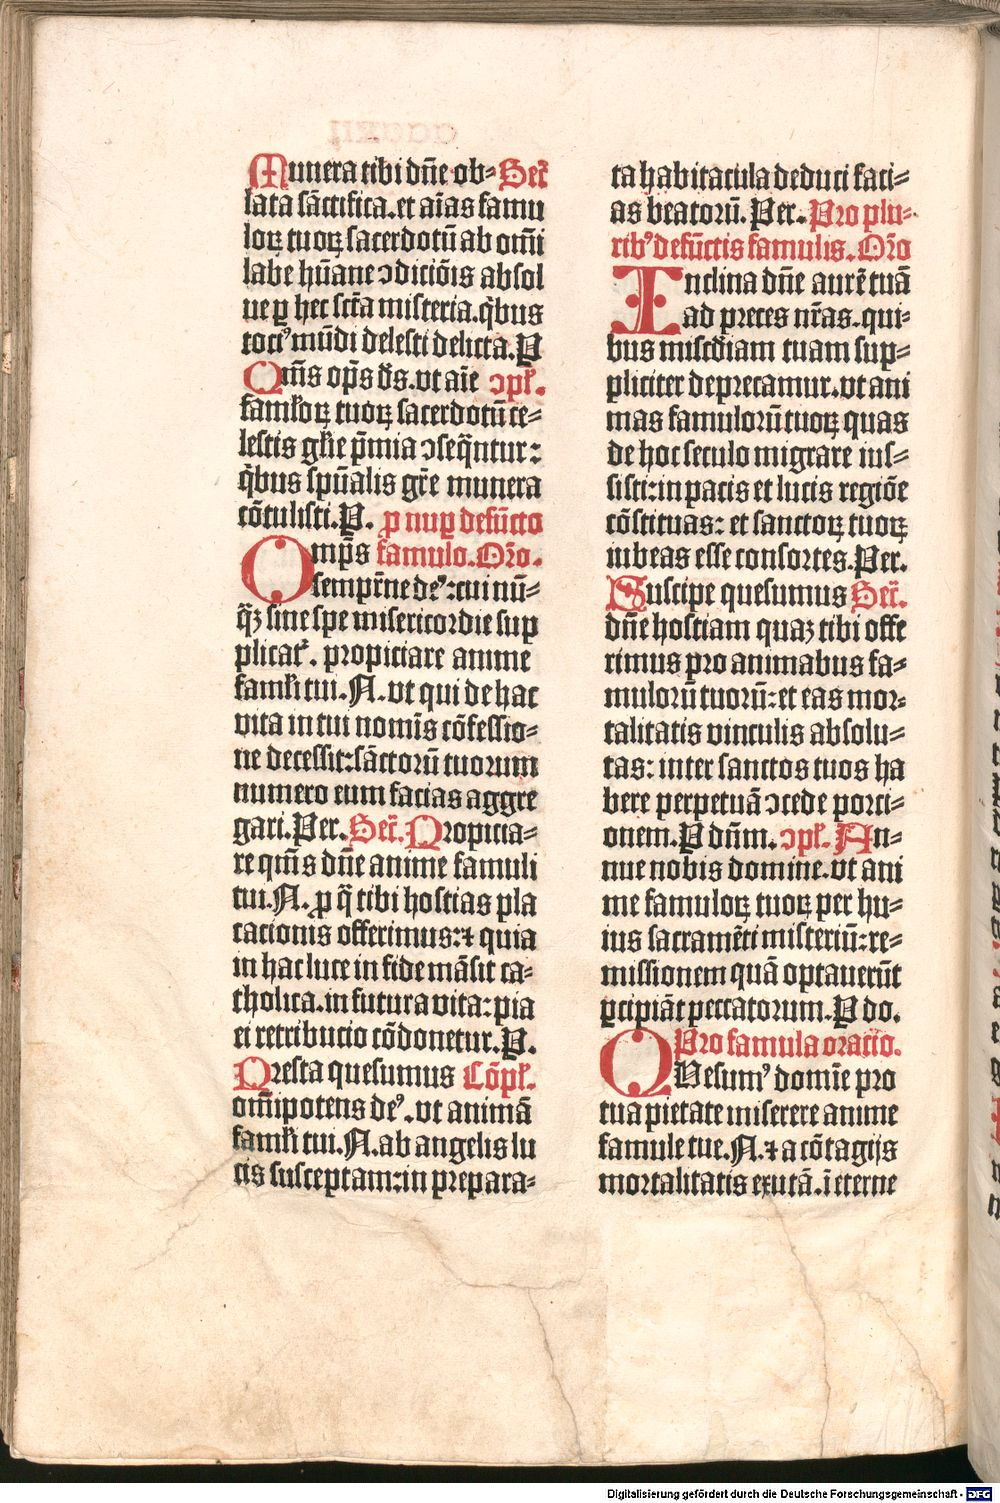 Munera tibi dn̄e ob⸗ Secr̄
lata sāctifica.et aīas famu
loꝝ tuoꝝ sacerdotū ab om̄i
labe hūane ↄdiciōis absol
ue ꝑ hec scr̄a misteria.q̇bus
toci⁹ mūdi delesti delicta.P
Om̄s op̄s ds̄.vt aīe ↄpl̄.
faml̄oꝝ tuoꝝ sacerdotū ce⸗
lestis gl̄ie p̄mia ↄseq̄ntur:
q̇bus spūalis gr̄e munera
cōtulisti.P. ꝑ nuꝑ defūcto
Omp̄s famulo. Or̄o.
sempr̄ne de⁹:cui nū⸗
q̄ꝫ sine spe misericordie sup
plicat᷑. propiciare anime
faml̄i tui.N. vt qui de hac
vita in tui nomīs cōfessio⸗
ne decessit:sāctorū tuorum
numero eum facias aggre
gari. Per. Secr̄. Propicia⸗
re qm̄s dn̄e anime famuli
tui.N. ꝓ q̄ tibi hostias pla
cationis offerimus:⁊ quia
in hac luce in fide māsit ca⸗
tholica.in futura vita:pia
ei retribucio cōdonetur. P.
Presta quesumus Cōpl̄.
om̄ipotens de⁹. vt animā
faml̄i tui.N.ab angelis lu
cis susceptam:in prepara⸗
ta habitacula deduci faci⸗
as beatorū. Per. Pro plu⸗
rib⁹ defūctis famulis. Or̄o
Inclina dn̄e aurē tuā
ad preces nr̄as.qui⸗
bus misc̄diam tuam sup⸗
pliciter deprecamur.vt ani
mas famulorū tuoꝝ quas
de hoc seculo migrare ius⸗
sisti:in pacis et lucis regiōe
cōstituas: et sanctoꝝ tuoꝝ
iubeas esse consortes. Per.
Suscipe quesumus Secr̄.
dn̄e hostiam quaꝫ tibi offe
rimus pro animabus fa⸗
mulorū tuorū:et eas mor⸗
talitatis vinculis absolu⸗
tas: inter sanctos tuos ha
bere perpetuā ↄcede porci⸗
onem. P dn̄m. ↄpl̄. An⸗
nue nobis domine.vt ani
me famuloꝝ tuoꝝ per hu⸗
ius sacramēti misteriū:re⸗
missionem quā optauerūt
ꝑcipiāt peccatorum. P do.
Pro famula oracio.
Quesum⁹ domīe pro
tua pietate miserere anime
famule tue.N.⁊ a cōtagijs
mortalitatis exutā.ī eterne
Digitalisierung gefördert durch die Deutsche Forschungsgemeinschaft - DFG